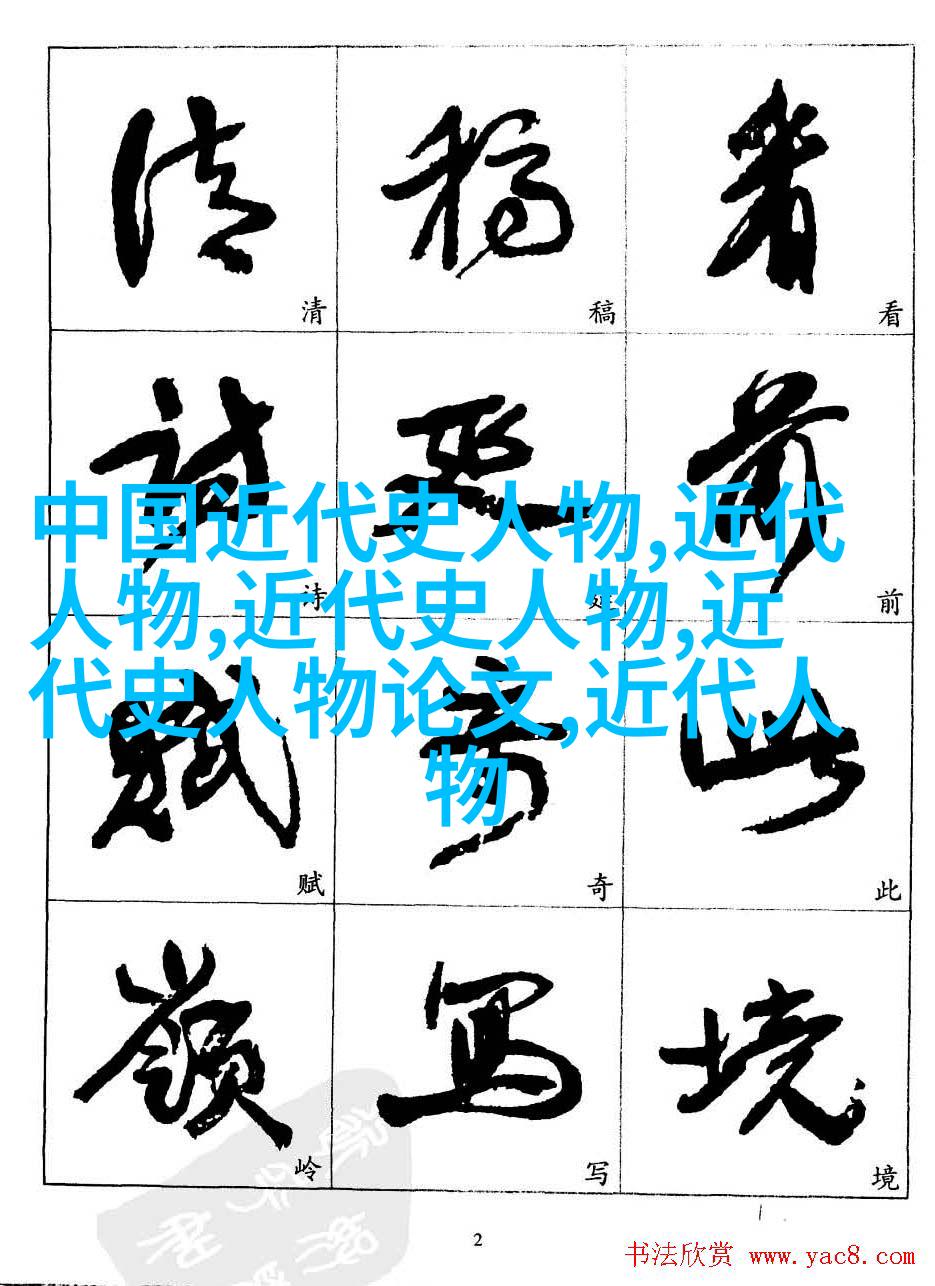 清 稿 看
诗 延 前
中国近代史人物,近代
人物,近代史人物,近
代史人物论文,近代人
物
赋 奇 此
岭 写 境
2
书法欣赏 www.yac8.com